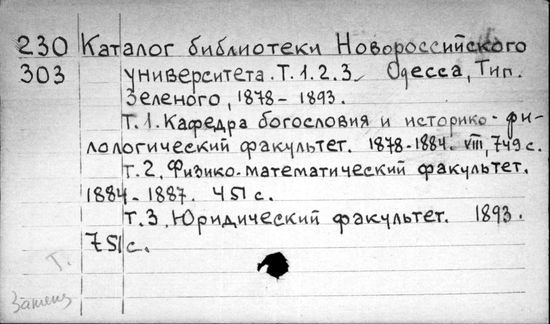 230 Каталог библиотеки Новороссийского
303 университета. Т. 1. 2. 3. Одесса, Тип.
Зеленого, 1878 - 1893.
Т. 1. Кафедра богословия и историко-фи-
лологический факультет. 1878-1884. VIII, 749 с.
Т. 2. Физико-математический факультет.
1884 - 1887. 451 с.
Т. 3. Юридический факультет. 1893.
751 с.
Т.